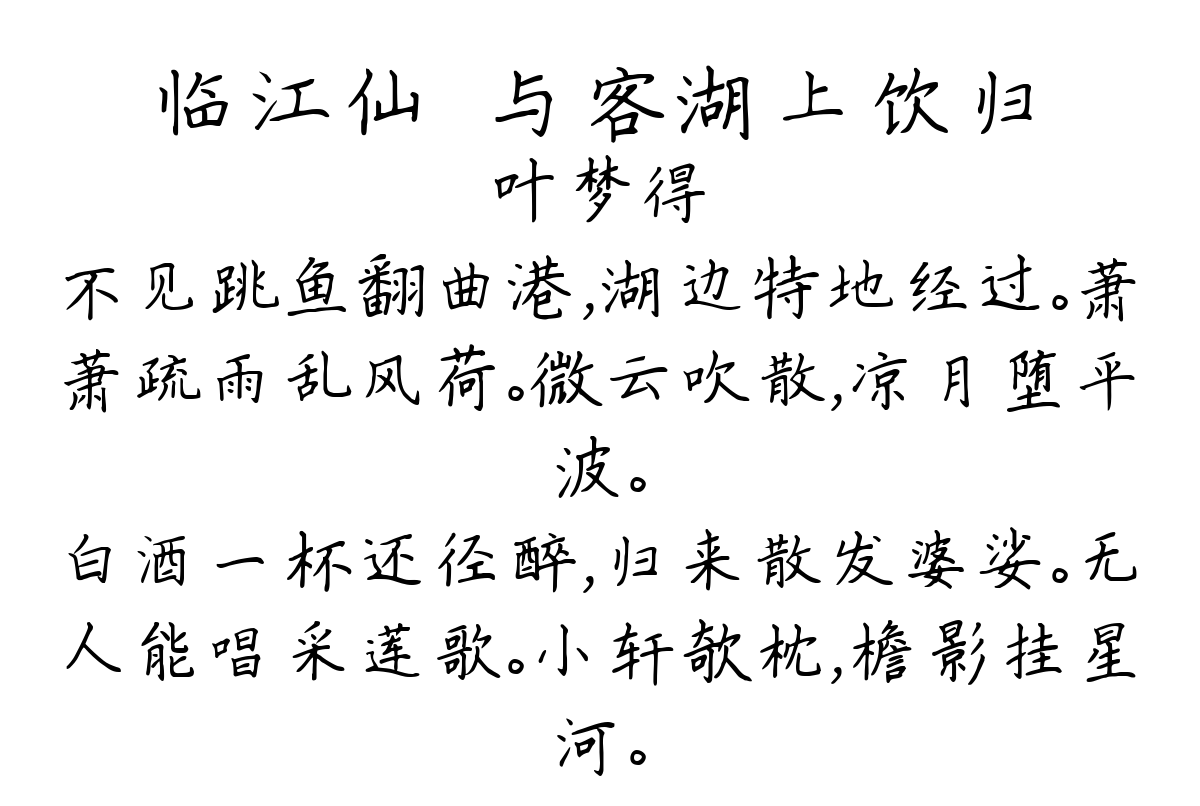 临江仙 与客湖上饮归
叶梦得
不见跳鱼翻曲港,湖边特地经过。萧
萧疏雨乱风荷。微云吹散,凉月堕平
波。
白酒一杯还径醉,归来散发婆娑。无
人能唱采莲歌。小轩欹枕,檐影挂星
河。